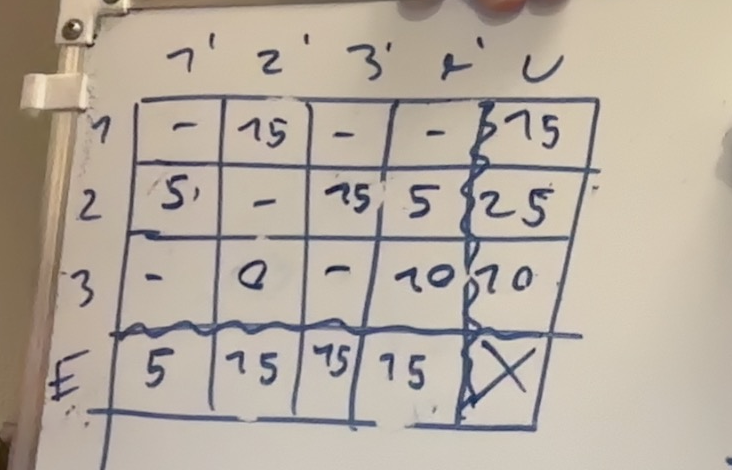 1' 2' 3' 4' U
1 - 15 - - 15
2 5 - 15 5 25
3 - 0 - 10 10
E 5 15 15 15 X